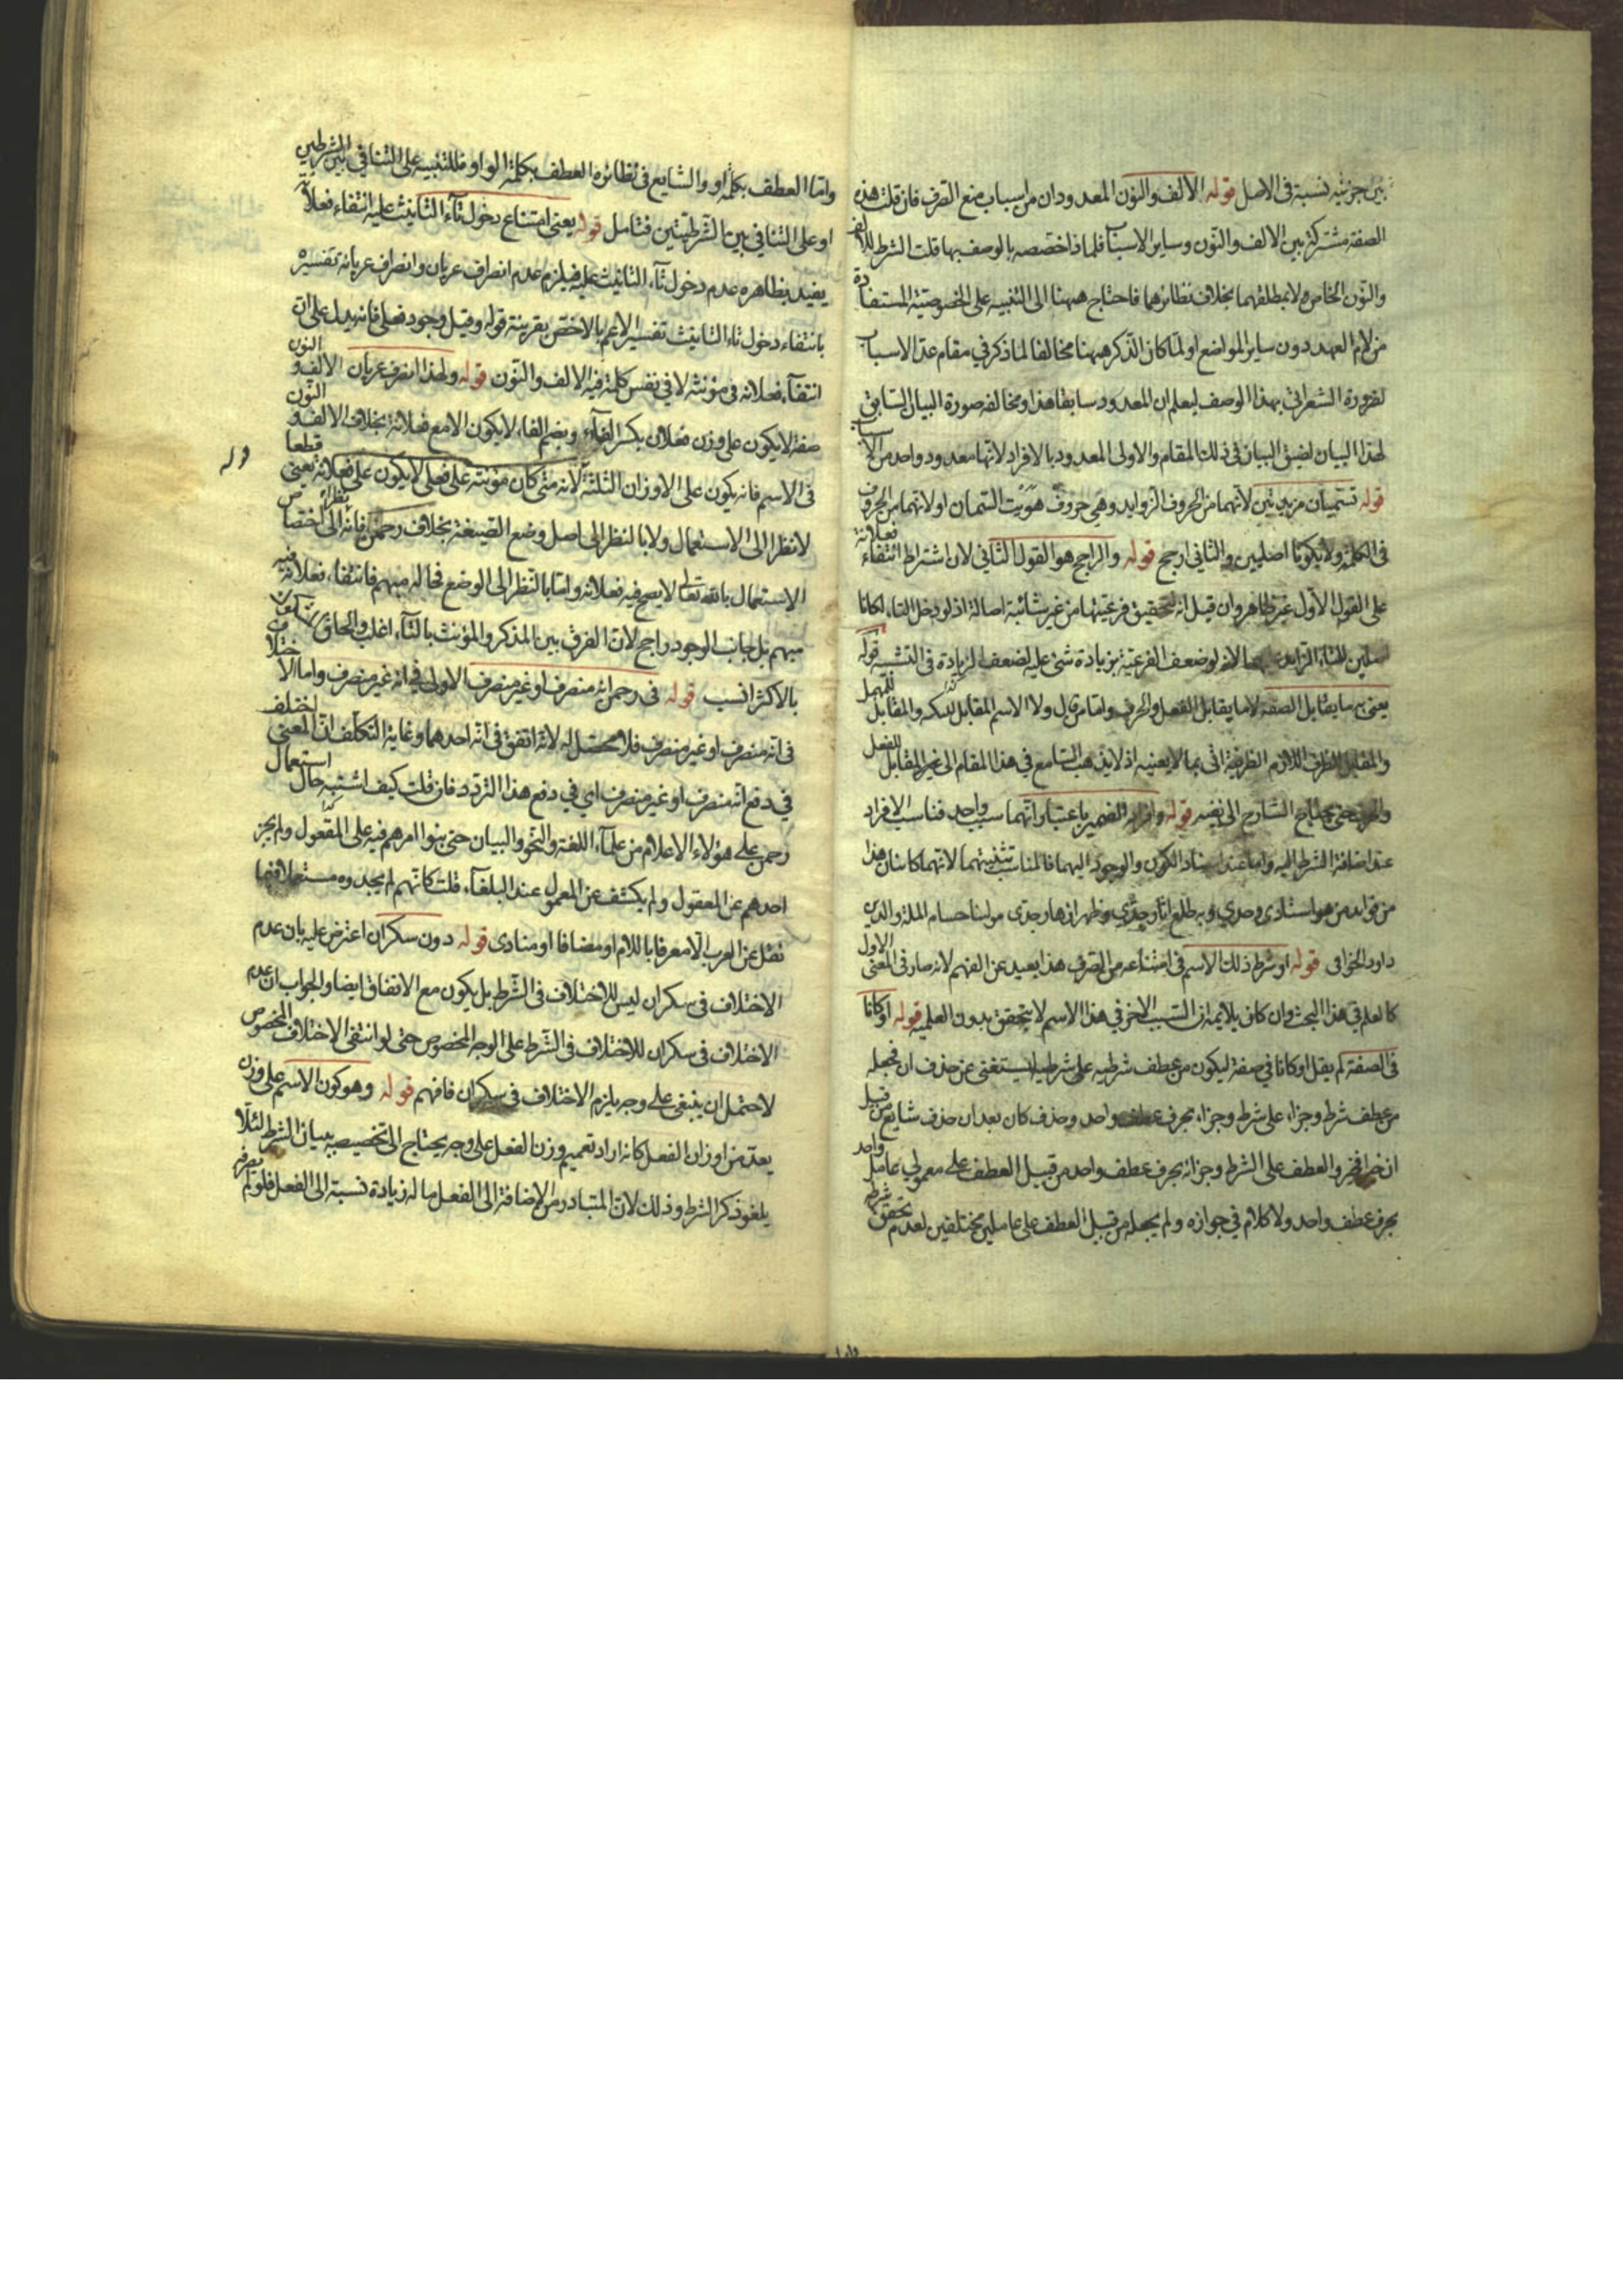 بين جزئيه نسبة في الاصل قوله الألف والنون المعدودان من اسباب منع الصرف فان قلت هذه
الصفة مشتركة بين الالف والنون وساير الاسباب فلماذا خصصه بالوصف بها قلت الشرط للالف
والنون الخاص لا بمطلقهما بخلاف نظائرهما فاحتاج ههنا الى التنبيه على الخصوصية المستفادة
من لام العهد دون ساير المواضع او لما كان الذكر ههنا مخالفا لما ذكر في مقام عدّ الاسباب
لضرورة الشعر اتى بهذا الوصف ليعلم ان المعدود سابقا هذا ومخالفه صورة البيان السابق
لهذا البيان لضيق البيان في ذلك المقام والاولى المعدود بالافراد لانها معدود واحد من الاسباب
قوله تسميان مزيدتين لانهما من الحروف الزوايد وهي حروف هويت السمان او لانهما من الحروف
في الكلمة ولا يكونا اصليين والثاني ارجح قوله والراجح هو القول الثاني لان اشتراط انتفاء فعلانة
على القول الاول غير ظاهر وان قيل انه لتحقيق فرعيتها من غير شائبة اصالة اذ لو دخل التاء لكانا
لانه لو ضعف الفرعية بزيادة شئ عليه لضعف الزيادة في التشبيه قوله
يعني به ما يقابل الصفة لا ما يقابل الفعل والحرف ولا الاسم المقابل والمقابل للمهمل
والمقابل للظرف اللازم الظرفية اتى بما لا يعنيه اذ لا يذهب السامع في هذا المقام الى غير المقابل للفعل
والحرف حتى يحتاج الشارح الى نفيه قوله وافراد الضمير باعتبار انهما سبب واحد فناسب الافراد
عند اضافة الشرط اليه واما عند اسناد الكون والوجود اليهما فالمناسب تثنيتهما لانهما كائنان هذا
من فوايد من هو استادى وجدي وبه طلع وظهر ازهار وجدى مولينا حسام الملة والدين
داود الخوافى قوله او شرط ذلك الاسم في امتناعه من الصرف هذا بعيد عن الفهم لانه صار في المعنى الاول
كالعلم في هذا البحث وان كان يلايمه ان السبب الاخر في هذا الاسم لا يتحقق بدون العلمية قوله او كانا
في الصفة لم يقل او كانا في صفة ليكون من عطف شرطيه على شرطيه ليستغنى عن حذف ان فجعله
من عطف شرط وجزاء على شرط وجزاء بحرف عطف واحد وحذف كان بعد ان حذف شايع من قبيل
ان خيرا فخير والعطف على الشرط وجزائه بحرف عطف واحد من قبيل العطف على معمولي عامل واحد
بحرف عطف واحد ولا كلام في جوازه ولم يجعله من قبيل العطف على عاملين مختلفين لعدم تحقق شرطه
واما العطف بكلمة او والشايع في نظائره العطف بكلمة الواو فللتنبيه على التنافي بين الشرطين
او على التنافي بين الشرطيتين فتامل قوله يعني امتناع دخول تاء التانيث عليه انتفاء فعلانة
يفيد بظاهره عدم دخول تاء التانيث عليه فيلزم عدم انصراف عريان وانصراف عريانة تفسيره
بانتفاء دخول تاء التانيث تفسير الاعم بالاخص بقرينة قوله وقيل وجود فعلى فانه يدل على ان
انتفاء فعلانة في مؤنثه لا في نفس كلمة فيه الالف والنون قوله ولهذا انصرف عريان الالف والنون
صفة لا يكون على وزن فعلان بكسر الفاء وبضم الفاء لا يكون الا مع فعلانة بخلاف الالف والنون
في الاسم فانه يكون على الاوزان الثلثة لانه متى كان مؤنثه على فعلى لا يكون على فعلانة يعني قطعا
لا نظرا الى الاستعمال ولا بالنظر الى اصل وضع الصيغة بخلاف رحمن فانه نظرا الى اختصاص
الاستعمال بالله تعالى لا يصح فيه فعلانة واما بالنظر الى الوضع فحاله مبهم فانتفاء فعلانة فيه
مبهم بل جانب الوجود راجح لان الفرق بين المذكر والمؤنث بالتاء اغلب والحاق
بالاكثر انسب قوله في رحمن انه منصرف او غير منصرف الاولى في انه غير منصرف واما الاختلاف
في انه منصرف او غير منصرف فلا محصل له لانه اتفق في انه احدهما وغاية التكلف ان المعنى اختلف
في دفع انه منصرف او غير منصرف اي في دفع هذا التردد فان قلت كيف اشتبه حال استعمال
رحمن على هؤلاء الاعلام من علماء اللغة والنحو والبيان حتى بنوا امرهم فيه على المعقول ولم يخبر
احدهم عن المعقول ولم يكشف عن المعمول عند البلغاء قلت كانهم لم يجدوه مستعملا فيما
نقل عن العرب الا معرفا باللام او مضافا او منادى قوله دون سكران اعترض عليه بان عدم
الاختلاف في سكران ليس للاختلاف في الشرط بل يكون مع الاتفاق ايضا والجواب ان عدم
الاختلاف في سكران للاختلاف في الشرط على الوجه المخصوص حتى لو انتفى الاختلاف المخصوص
لاحتمل ان ينتفي على وجه يلزم الاختلاف في سكران فافهم قوله وهو كون الاسم على وزن
يعد من اوزان الفعل كانه اراد تعميم وزن الفعل على وجه يحتاج الى تخصيصه ببيان الشرط لئلا
يلغو ذكر الشرط وذلك لان المتبادر من الاضافة الى الفعل ما له زيادة نسبة الى الفعل فلو لم يصرفه